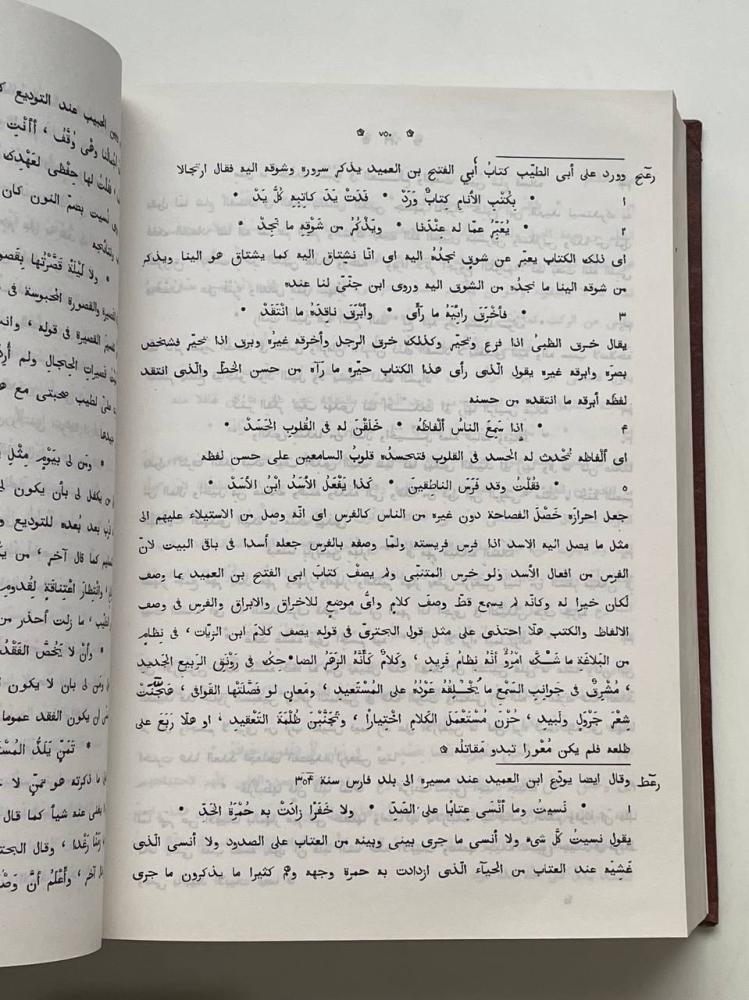 ٧٥٠
رعح وورد على أبى الطيّب كتابُ أبي الفتح بن العميد يذكر سروره وشوقه اليه فقال ارتجالا
١ بِكُتْبِ الأَنامِ كِتابٌ وَرَدْ • فَدَتْ يَدَ كاتِبِهِ كُلُّ يَدْ •
٢ يُعَبِّرُ عمّا له عِنْدَنا • ويَذْكُرُ من شَوْقِهِ ما نَجِدْ •
اى ذلك الكتاب يعبّر عن شوقٍ نجدُهُ اليه اى انّا نشتاق اليه كما يشتاق هو الينا ويذكر
من شوقه الينا ما نجدُه من الشوق اليه وروى ابن جنّى لنا عنده
٣ فأَخْرَقَ رائيَهُ ما رَأَى • وأَبْرَقَ ناقِدَهُ ما انْتَقَدْ •
يقال خرق الظبىُ اذا فزع وتحيّر وكذلك خرق الرجل وأخرقه غيرُه وبرق اذا تحيّر فشخص
بصرُه وابرقه غيره يقول الّذى رأى هذا الكتاب حيّره ما رآه من حسن الخطّ والّذى انتقد
لفظه أبرقه ما انتقده من حسنه
۴ إذا سَمِعَ الناسُ أَلْفاظَهُ • خَلَقْنَ له فى القُلوبِ الحَسَدْ •
اى ألفاظه تُحْدث له الحسد فى القلوب فتحسدُه قلوبُ السامعين على حسن لفظه
٥ فقُلْتُ وقد فَرَسَ الناطِقينَ • كَذا يَفْعَلُ الأَسَدُ ابْنُ الأَسَدْ •
جعل احرازه خَصْلَ الفصاحة دون غيره من الناس كالفرس اى انّه وصل من الاستيلاء عليهم الى
مثل ما يصل اليه الاسد اذا فرس فريسته ولمّا وصفه بالفرس جعله أسدا فى باقى البيت لانّ
الفرس من افعال الأسد ولو خرس المتنبّى ولم يصف كتابَ ابى الفتح بن العميد بما وصف
لكان خيرا له وكأنّه لم يسمع قطّ وصف كلامٍ واىُّ موضعٍ للاخراق والابراق والفرس فى وصف
الالفاظ والكتب هلّا احتذى على مثل قول البحترىّ فى قوله يصف كلامَ ابن الزيّات ، فى نِظامٍ
من البَلاغَةِ ما شَكَّ امْرُوٌ أنّهُ نظامُ فَريدِ ، وكَلامٍ كأنّهُ الزَهَرُ الضاحِكُ فى رَوْنَقِ الربيع الجَديدِ
، مُشْرِقٌ فى جَوانِبِ السَمْعِ ما يُخْلِقُهُ عَوْدُهُ على المُسْتَعيدِ ، ومَعانٍ لو فَصَّلَتْها القَوافى ، هَجَّنَتْ
شِعْرَ جَرْوَلٍ ولَبيدِ ، حُزْنَ مُسْتَعْمَلَ الكَلامِ اخْتِياراً ، وتَجَنَّبْنَ ظُلْمَةَ التَعْقيدِ ، او هلّا رَبَعَ على
ظلعه فلم يكن مُعْورا تبدو مَقاتلُه
رعط وقال ايضا يودّع ابن العميد عند مسيره الى بلد فارس سنة ٣٥۴
١ نَسيتُ وما أَنْسَى عِتابًا على الصَدِّ • ولا خَفَرًا زادَتْ به حُمْرَةُ الخَدِّ •
يقول نسيتُ كُلَّ شىء ولا أنسى ما جرى بينى وبينه من العتاب على الصدود ولا أنسى الّذى
غَشِيَه عند العتاب من الحيآء الّذى ازدادت به حمرة وجهه وهم كثيرا ما يذكرون ما جرى
الحبيب عند التوديع
وهْى وُقَّفُ ، أأنْتِ
فقُلتُ لها حِفْظى لعَهْدِك
نسيت بضمّ النون كان
• ولا لَيْلَةً قَصَّرْتُها بِقَصورَةٍ
والقصورة المحبوسة فى
القصيرة فى قوله ، وانت
قصيراتِ الحِجالِ ولم أُرِدْ
لطيب صحبتى مع
• ومَن لى بِيَوْمٍ مِثْلِ
من يكفل لى بأن يكون لى
بعد بُعده للتوديع
كما قال آخر ، من
وانتِظارَ اعْتِناقَةٍ لقُدومِ
، ما زلت أحذر من
• وأَنْ لا يَخُصَّ الفَقْدُ
ومَن لى بان لا يكون
أن يكون الفقد عموما
• تَمَنٍّ يَلَذُّ المُسْتَهامُ
ما ذكرته هو تمنٍّ لا
يغنى عنه شيأً كما قال
رَغْدا ، وقال البحترى
آخر ، وأَعْلَمُ أنّ وَصْلَ